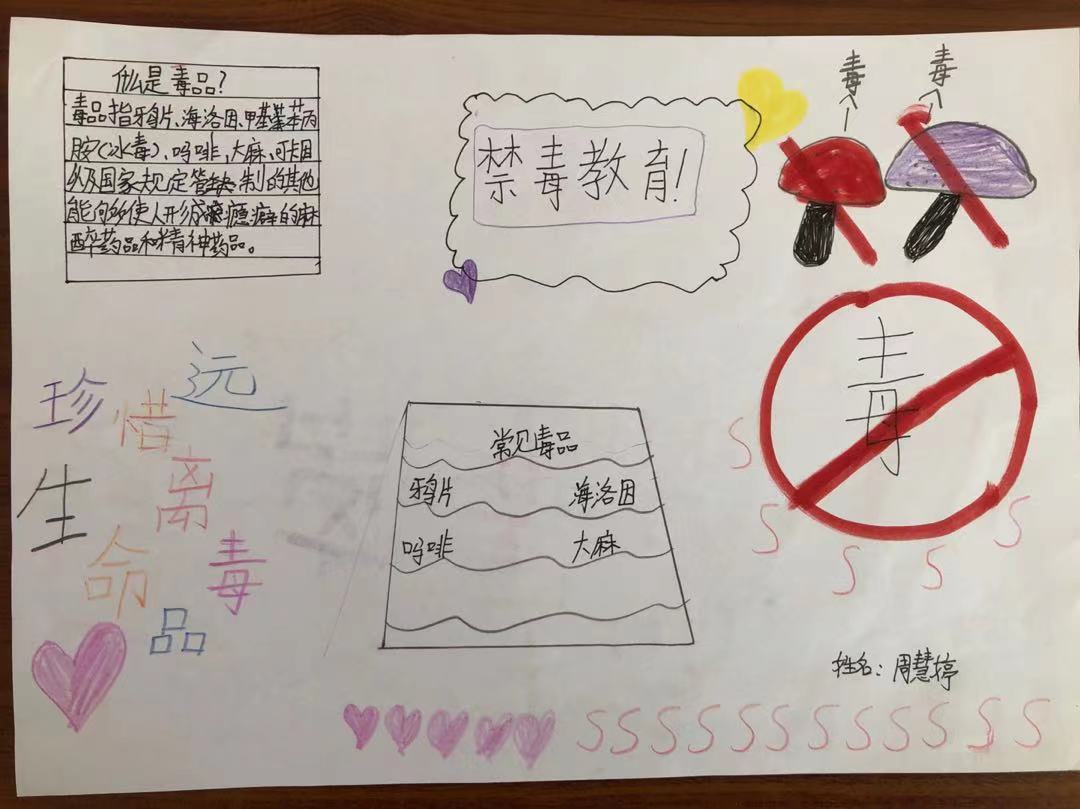 什么是毒品?
毒品指鸦片、海洛因、甲基苯丙
胺(冰毒)、吗啡,大麻,可卡因
以及国家规定管制的其他
能够使人形成瘾癖的麻
醉药品和精神药品。
禁毒教育!
毒
毒
毒
珍惜生命
远离毒品
常见毒品
鸦片 海洛因
吗啡 大麻
S
S
S
S
S
姓名:周慧婷
SSSSSSSSSSSSS